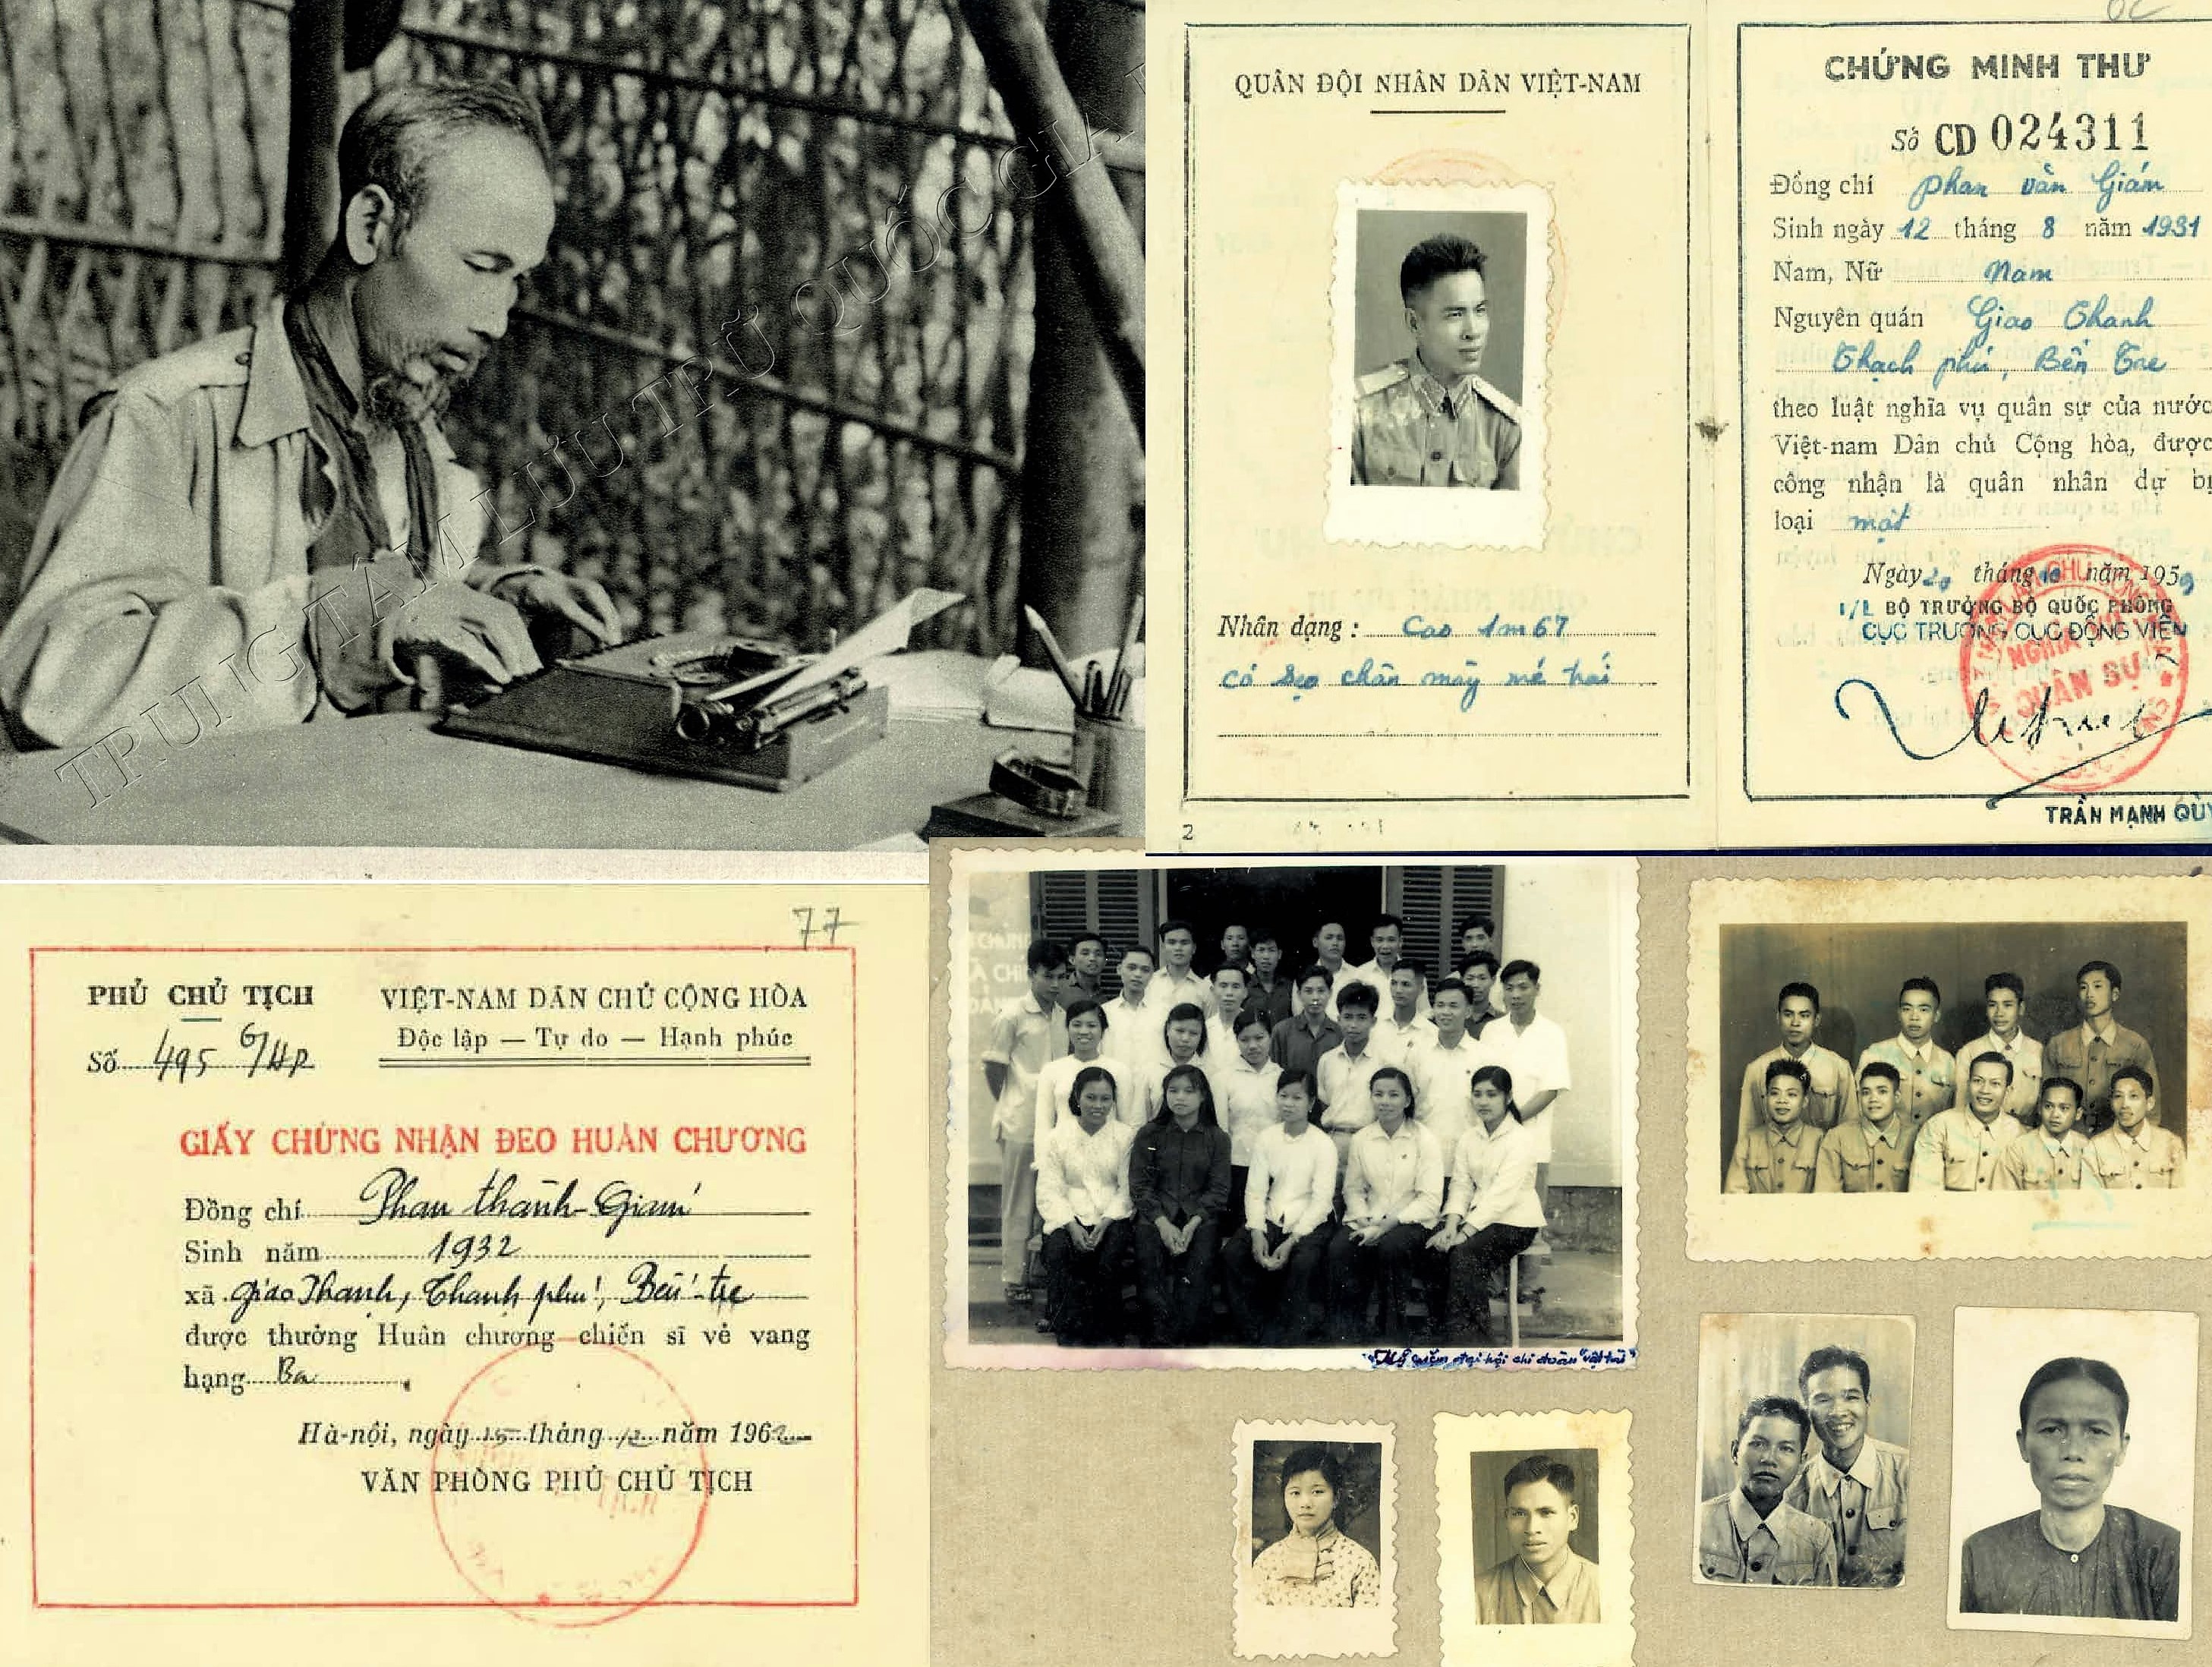 TRUNG TÂM LƯU TRỮ QUỐC GIA
QUÂN ĐỘI NHÂN DÂN VIỆT-NAM
Nhân dạng: Cao 1m67
có sẹo chân mày mé trái
2
CHỨNG MINH THƯ
Số CD 024311
Đồng chí Phan văn Giám
Sinh ngày 12 tháng 8 năm 1931
Nam, Nữ Nam
Nguyên quán Giao Thanh
Thạch phú, Bến Tre
theo luật nghĩa vụ quân sự của nước
Việt-nam Dân chủ Cộng hòa, được
công nhận là quân nhân dự bị
loại một
Ngày 20 tháng 10 năm 1959
T/L BỘ TRƯỞNG BỘ QUỐC PHÒNG
CỤC TRƯỞNG CỤC ĐỘNG VIÊN
NGHĨA VỤ
QUÂN SỰ
TRẦN MẠNH QÙY
77
PHỦ CHỦ TỊCH
Số 495
VIỆT-NAM DÂN CHỦ CỘNG HÒA
Độc lập — Tự do — Hạnh phúc
GIẤY CHỨNG NHẬN ĐEO HUÂN CHƯƠNG
Đồng chí Phan thành-Giám
Sinh năm 1932
xã Giao Thạnh, Thạnh phú, Bến-tre
được thưởng Huân chương chiến sĩ vẻ vang
hạng Ba
Hà-nội, ngày 15 tháng 12 năm 1962
VĂN PHÒNG PHỦ CHỦ TỊCH
Kỷ niệm đại hội chi đoàn "vật trù"